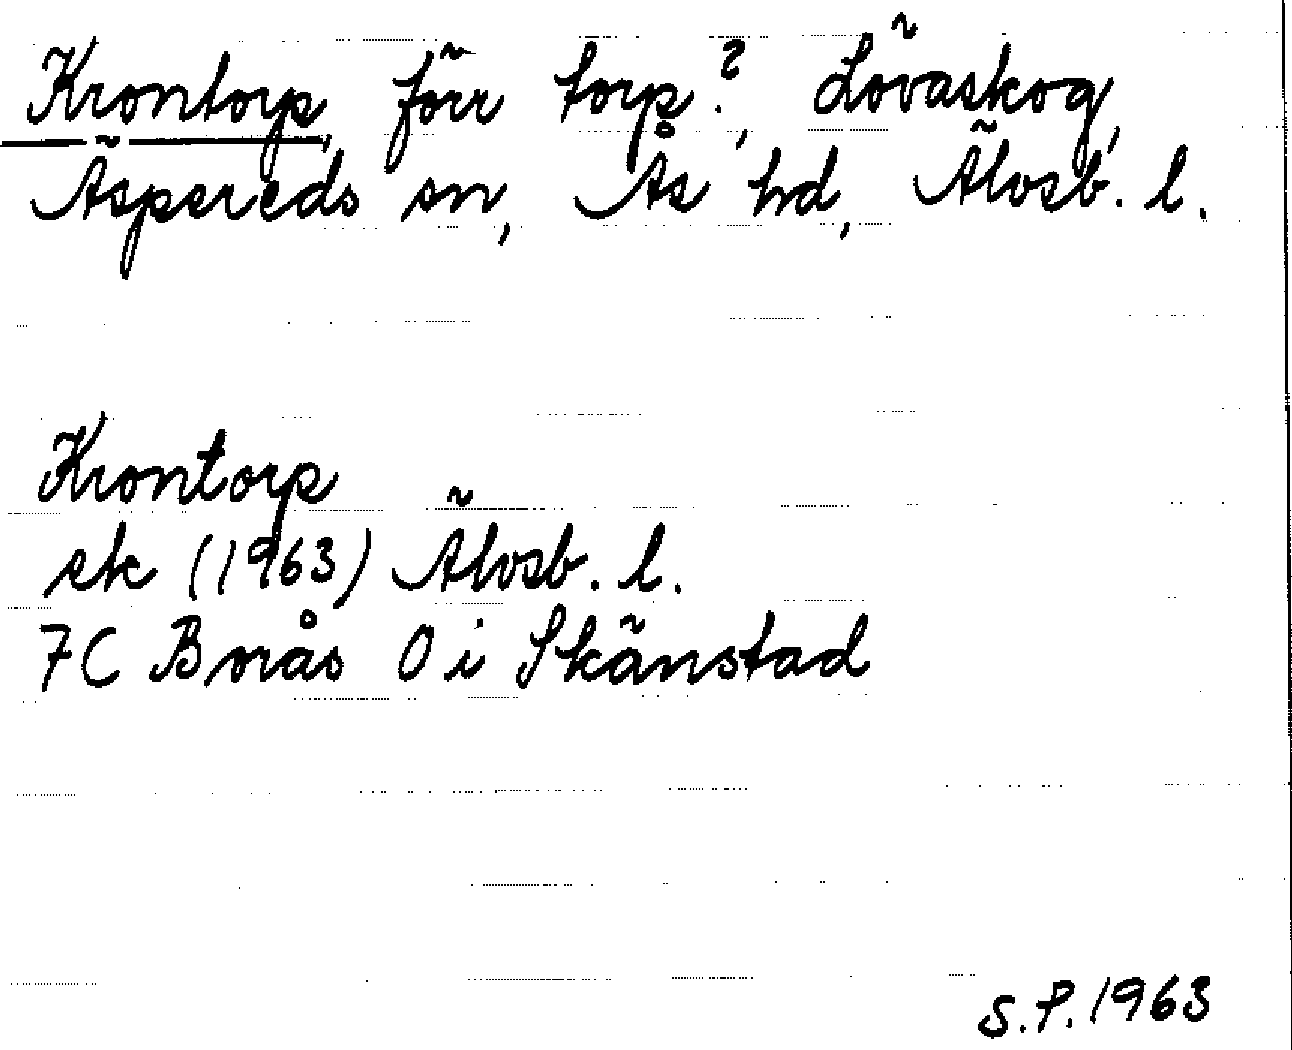 Krontorp, förr torp?, Lövaskog,
Äspereds sn, Ås hd, Älvsb. l.
Krontorp
ek (1963) Älvsb. l.
7C Borås Ö i Skänstad
S.P. 1963